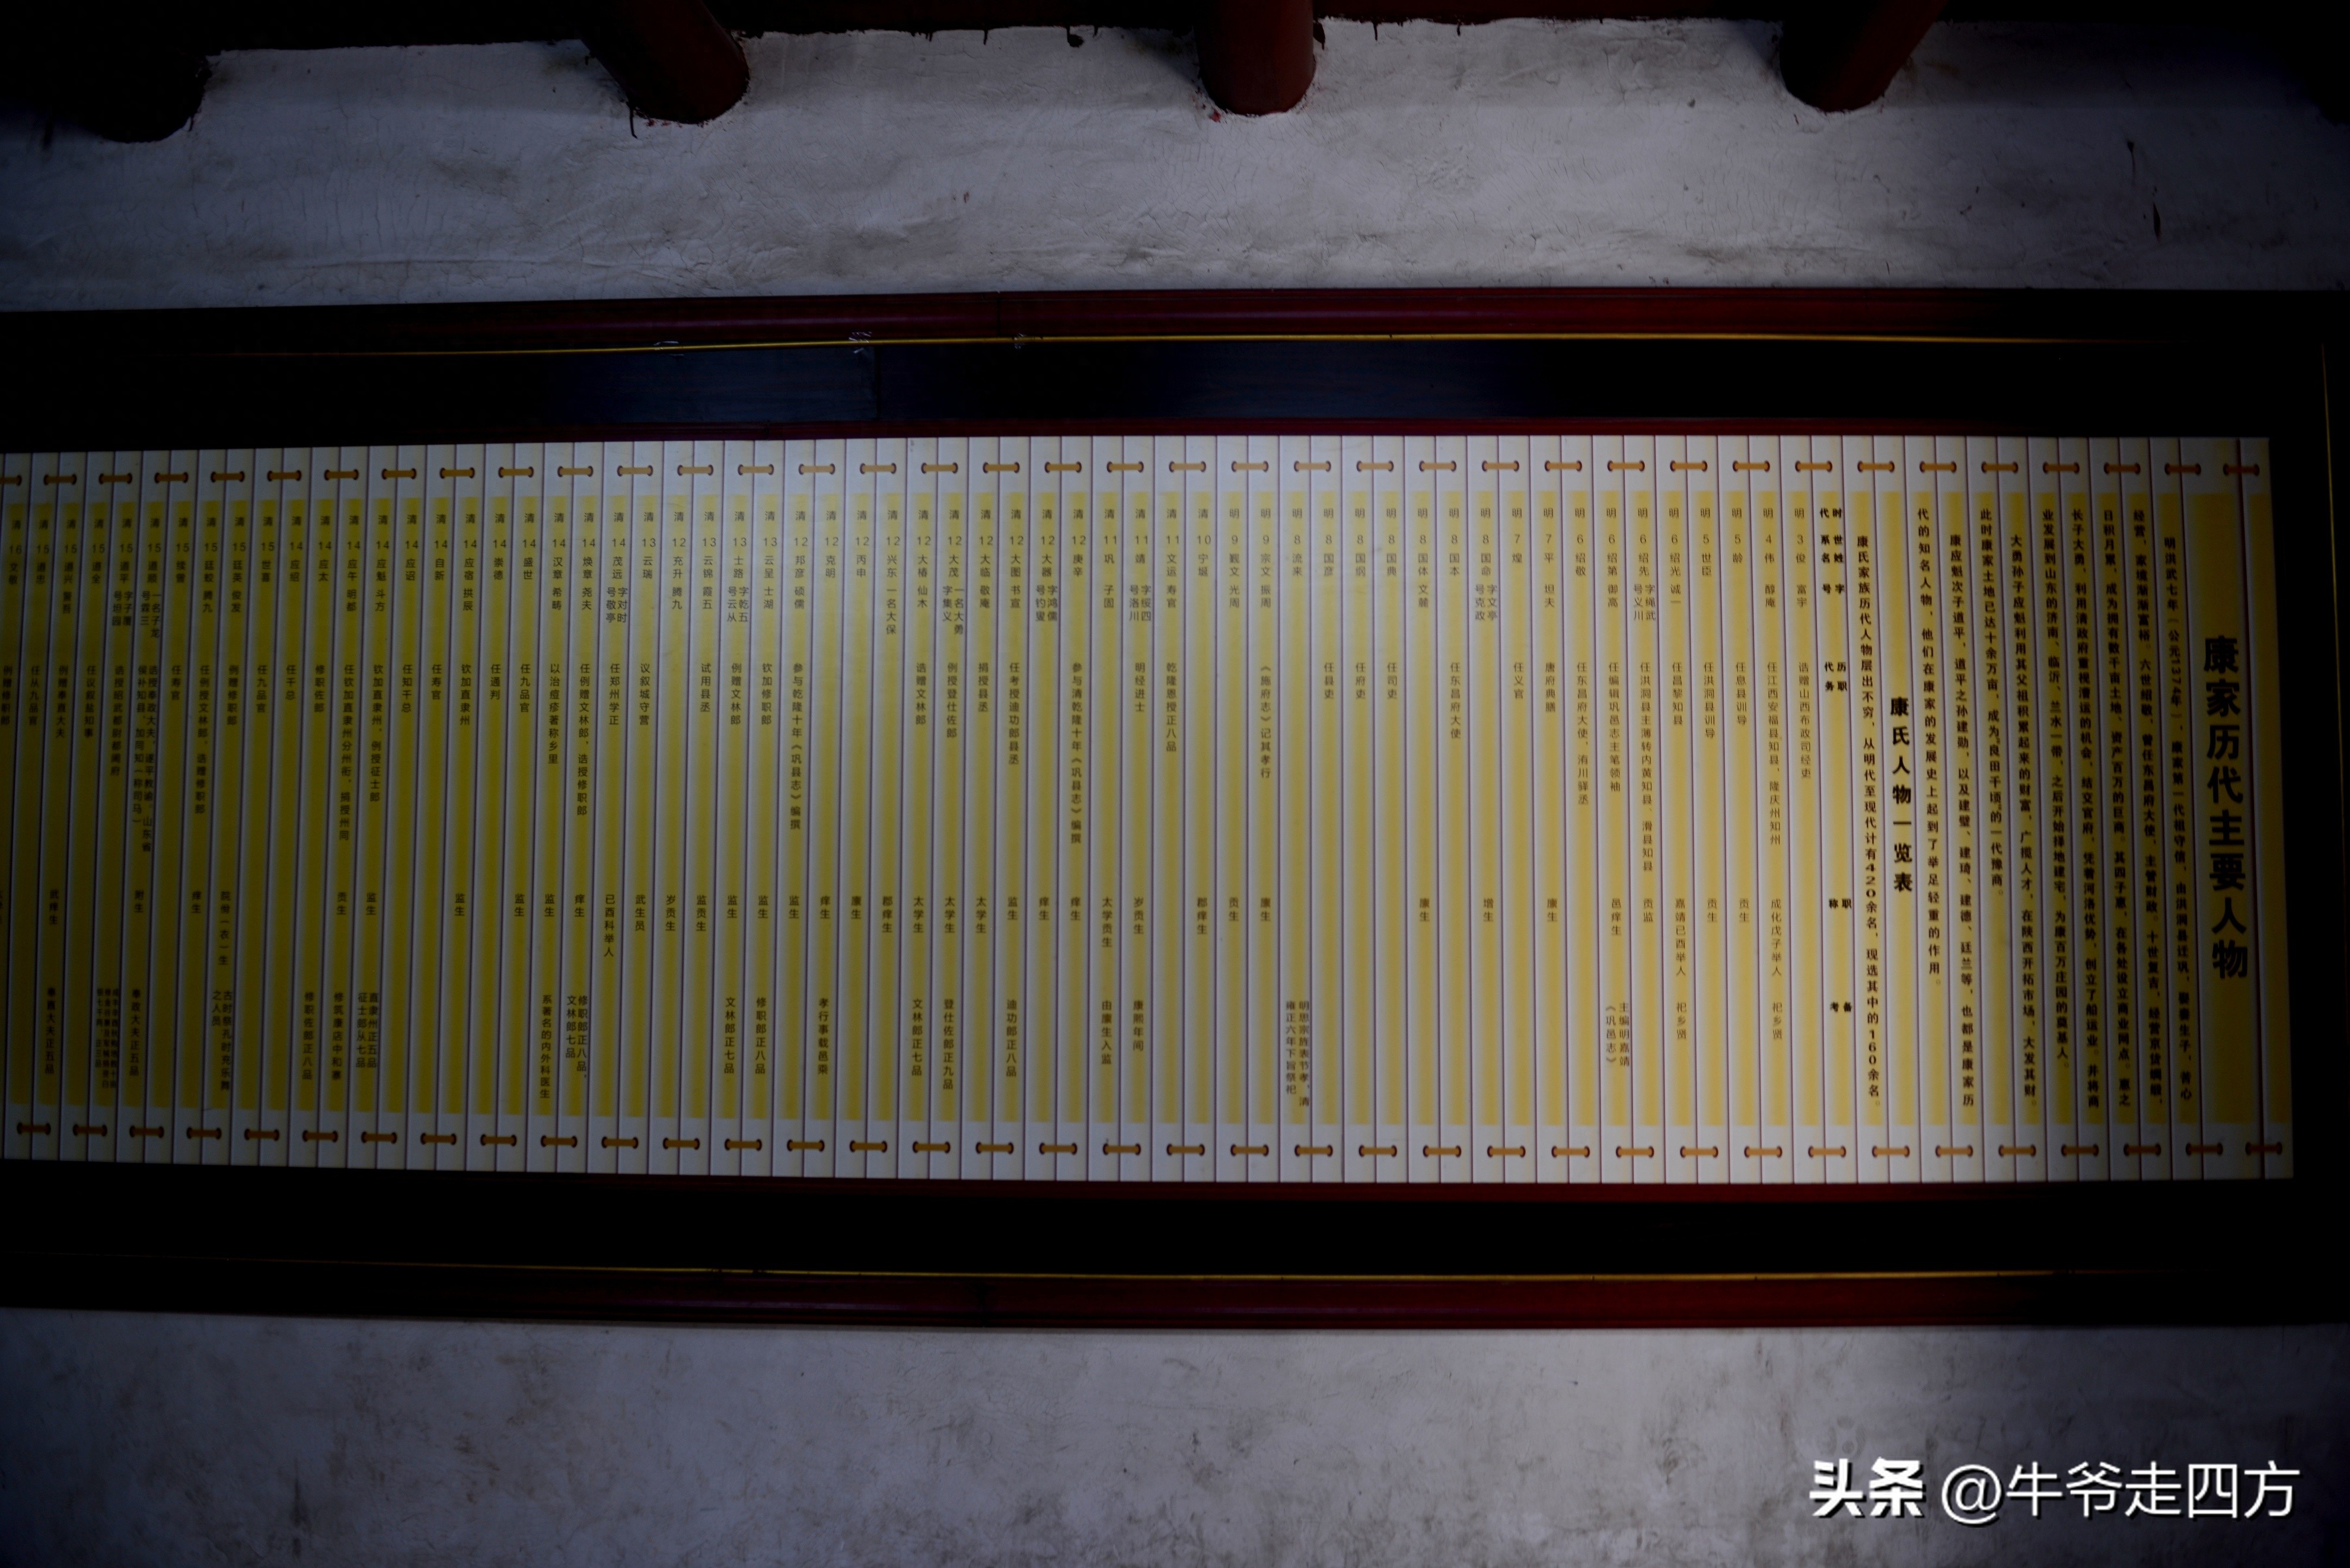 康家历代主要人物
明洪武七年(公元1374年),康家第一代祖守信,由洪洞县迁巩,娶妻生子,苦心
经营,家境渐渐富裕。六世绍敬,曾任东昌府大使,主管财政。十世复吉,经营京货绸缎,
日积月累,成为拥有数千亩土地、资产百万的巨商。其四子惠,在各处设立商业网点。惠之
长子大勇,利用清政府重视漕运的机会,结交官府,凭着河洛优势,创立了船运业。并将商
业发展到山东的济南、临沂、兰水一带,之后开始择地建宅,为康百万庄园的奠基人。
大勇孙子应魁利用其父祖积累起来的财富,广揽人才,在陕西开拓市场,大发其财。
此时康家土地已达十余万亩,成为"良田千顷"的一代豫商。
康应魁次子道平,道平之孙建勋,以及建璧、建琦、建德、廷兰等,也都是康家历
代的知名人物,他们在康家的发展史上起到了举足轻重的作用。
康氏人物一览表
康氏家族历代人物层出不穷,从明代至现代计有420余名,现选其中的160余名。
时代 世系 姓名 字号 历代职务 职称 备考
明 3 俊 富宇 诰赠山西布政司经吏
明 4 伟 醇庵 任江西安福县知县,隆庆州知州 成化戊子举人 祀乡贤
明 5 龄 任息县训导 贡生
明 5 世臣 任洪洞县训导 贡生
明 6 绍光 诚一 任昌黎知县 嘉靖己酉举人 祀乡贤
明 6 绍先 字绳武号义川 任洪洞县主薄转内黄知县、滑县知县 贡监
明 6 绍第 御高 任编辑巩邑志主笔领袖 邑痒生 主编明嘉靖《巩邑志》
明 6 绍敬 任东昌府大使,洧川驿丞
明 7 平 坦夫 唐府典膳 廪生
明 7 煌 任义官
明 8 国命 字文亭号克政 增生
明 8 国本 任东昌府大使
明 8 国体 文麓 廪生
明 8 国典 任司吏
明 8 国烟 任府吏
明 8 国彦 任县吏
明 8 流来 明思宗族表节孝,清雍正六年下旨祭祀
明 9 宗文 振周 《施府志》记其孝行 廪生
明 9 觐文 光周 贡生
清 10 宁城 郡痒生
清 11 文运 寿官 乾隆恩授正八品
清 11 靖 字绥四号洛川 明经进士 岁贡生 康熙年间
清 11 巩 子固 太学贡生 由廪生入监
清 12 庚辛 参与清乾隆十年《巩县志》编撰 痒生
清 12 大器 字鸿儒号钓蜜 痒生
清 12 大图 书宣 任考授迪功郎县丞 监生 迪功郎正八品
清 12 大临 敬庵 捐授县丞 太学生
清 12 大茂 一名大勇字集义 例授登仕佐郎 太学生 登仕佐郎正九品
清 12 大椿 仙木 诰赠文林郎 太学生 文林郎正七品
清 12 兴东 一名大保 郡痒生
清 12 丙申 廪生
清 12 克明 痒生 孝行事载邑乘
清 12 邦彦 硕儒 参与乾隆十年《巩县志》编撰 监生
清 13 云星 士湖 钦加修职郎 监生 修职郎正八品
清 13 士路 字乾五号云从 例赠文林郎 监生 文林郎正七品
清 13 云锦 霞五 试用县丞 监贡生
清 12 充升 腾九 岁贡生
清 13 云瑞 议叙城守营 武生员
清 14 茂远 字对时号敬亭 任郑州学正 己酉科举人
清 14 焕章 尧夫 任例赠文林郎,诰授修职郎 痒生 修职郎正八品,文林郎七品
清 14 汉章 希畴 以治痘疹著称乡里 监生 系著名的内外科医生
清 14 盛世 任九品官 监生
清 14 崇德 任通判
清 14 应宿 拱辰 钦加直隶州 监生
清 14 自新 任寿官
清 14 应诏 任知千总
清 14 应魁 斗方 钦加直隶州,例授征士郎 监生 直隶州正五品征士郎从七品
清 14 应午 明都 任钦加直隶州分州衔,捐授州同 贡生 修筑康店中和寨
清 14 应太 修职佐郎 修职佐郎正八品
清 14 应绍 任千总
清 15 世喜 任九品官
清 15 廷英 俊发 例赠修职郎 古时祭孔时充乐舞之人员
清 15 廷蛟 腾九 任例授文林郎,诰赠修职郎 痒生
清 15 任寿官
清 15 道顺 一名子龙号霖三 附生 奉政大夫正五品
清 15 道平 字子履号坦园 诰授昭武都尉都阃府
清 15 道全 任议叙县知事
清 15 道兴 例赠奉直大夫
清 15 道忠 任从九品官 武痒生 奉直大夫正五品
清 16
头条 @牛爷走四方